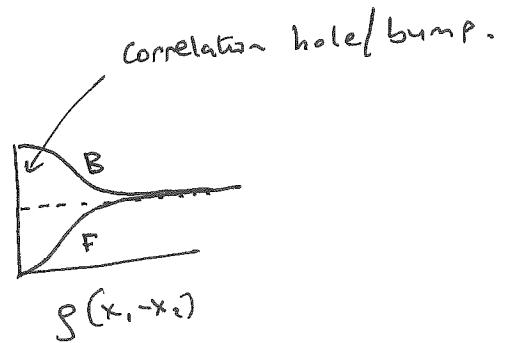 Correlation hole/bump.
B
F
ρ(x₁-x₂)